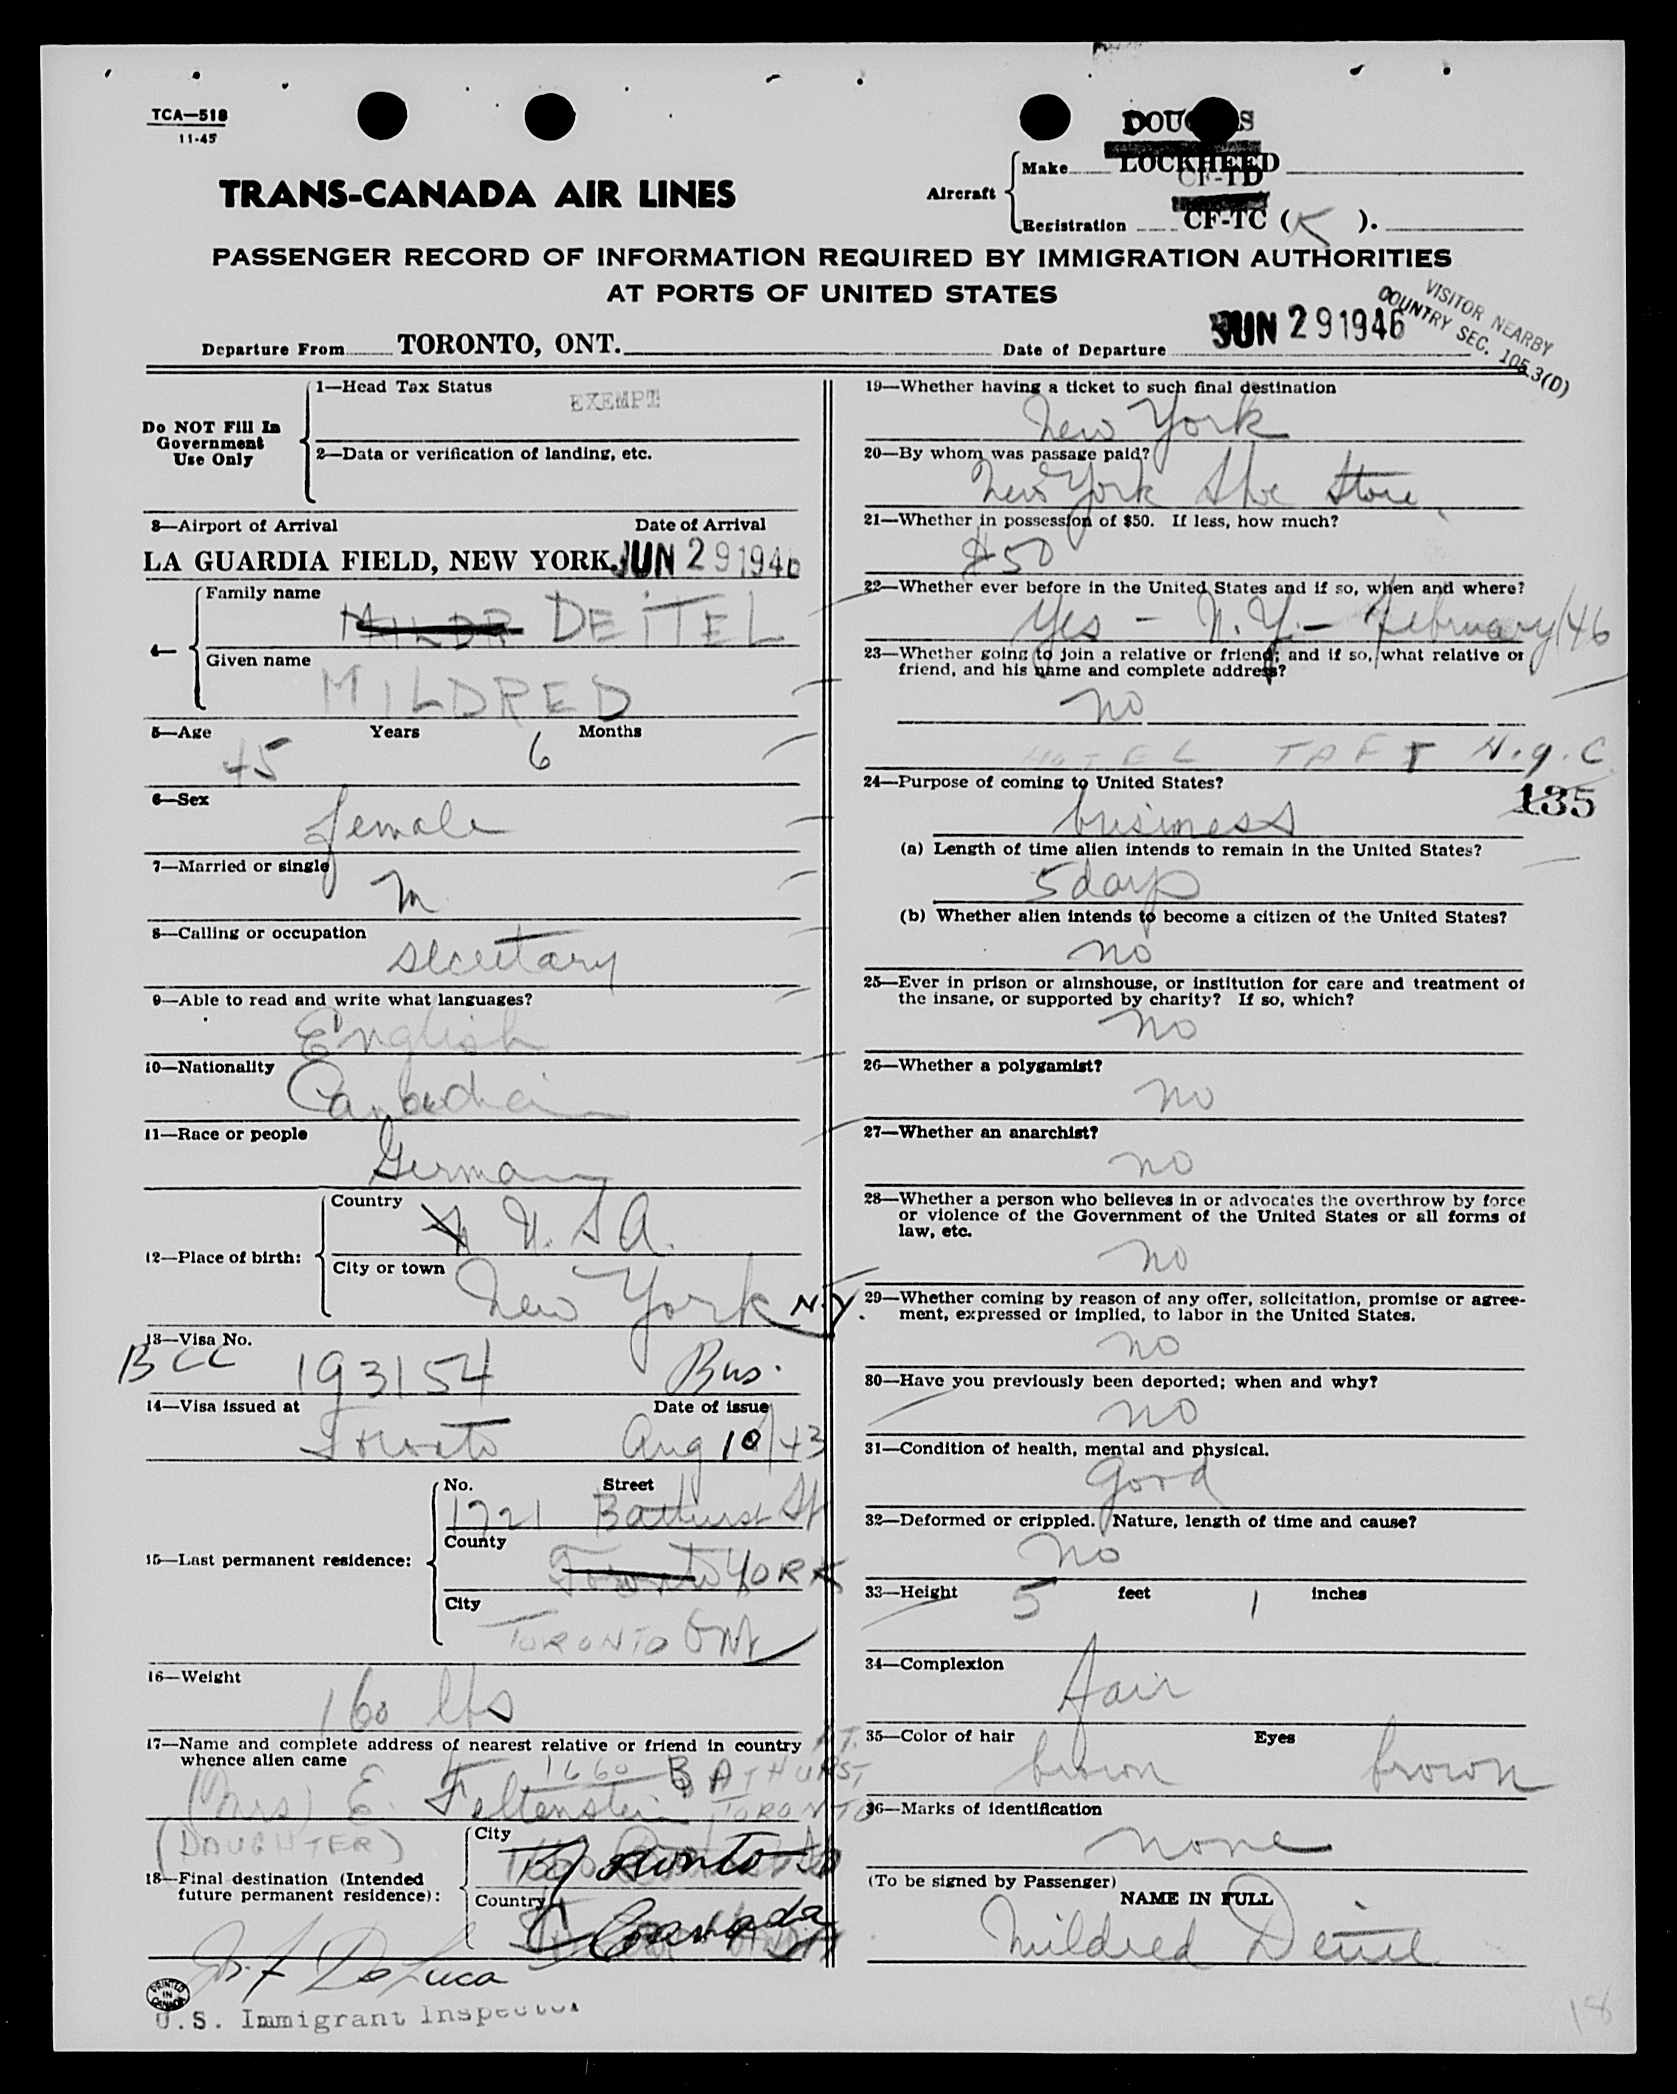 TCA—518
11-45
TRANS-CANADA AIR LINES
Aircraft
Make LOCKHEED
CF-TD
Registration CF-TC (K ).
PASSENGER RECORD OF INFORMATION REQUIRED BY IMMIGRATION AUTHORITIES
AT PORTS OF UNITED STATES
VISITOR NEARBY
COUNTRY SEC. 105.3(D)
Departure From TORONTO, ONT. Date of Departure JUN 29 1946
Do NOT Fill In
Government
Use Only
1—Head Tax Status EXEMPT
2—Data or verification of landing, etc.
3—Airport of Arrival Date of Arrival
LA GUARDIA FIELD, NEW YORK. JUN 29 1946
4—
Family name
DEITEL
Given name
MILDRED
5—Age Years Months
45 6
6—Sex
female
7—Married or single
M
8—Calling or occupation
secretary
9—Able to read and write what languages?
English
10—Nationality
Canadian
11—Race or people
German
12—Place of birth:
Country
U.S.A.
City or town
New York N.Y.
13—Visa No.
BCC 193154 Bus.
14—Visa issued at Date of issue
Toronto Aug 10/43
15—Last permanent residence:
No. Street
1721 Bathurst St
County
Toronto YORK
City
TORONTO Ont
16—Weight
160 lbs
17—Name and complete address of nearest relative or friend in country
whence alien came
1660 BATHURST, ST.
(Mrs) E. Feltenstein TORONTO
(DAUGHTER)
18—Final destination (Intended
future permanent residence):
City
Toronto
Country
Canada
Jos. F. DeLuca
U.S. Immigrant Inspector
PRINTED
IN
CANADA
19—Whether having a ticket to such final destination
New York
20—By whom was passage paid?
New York Shoe Store
21—Whether in possession of $50. If less, how much?
$50
22—Whether ever before in the United States and if so, when and where?
Yes – N.Y. – February/46
23—Whether going to join a relative or friend; and if so, what relative or
friend, and his name and complete address?
no
HOTEL TAFT N.Y.C.
24—Purpose of coming to United States?
135
business
(a) Length of time alien intends to remain in the United States?
5 days
(b) Whether alien intends to become a citizen of the United States?
no
25—Ever in prison or almshouse, or institution for care and treatment of
the insane, or supported by charity? If so, which?
no
26—Whether a polygamist?
no
27—Whether an anarchist?
no
28—Whether a person who believes in or advocates the overthrow by force
or violence of the Government of the United States or all forms of
law, etc.
no
29—Whether coming by reason of any offer, solicitation, promise or agree-
ment, expressed or implied, to labor in the United States.
no
30—Have you previously been deported; when and why?
no
31—Condition of health, mental and physical.
good
32—Deformed or crippled. Nature, length of time and cause?
no
33—Height 5 feet 1 inches
34—Complexion
fair
35—Color of hair Eyes
brown brown
36—Marks of identification
none
(To be signed by Passenger)
NAME IN FULL
Mildred Deitel
18